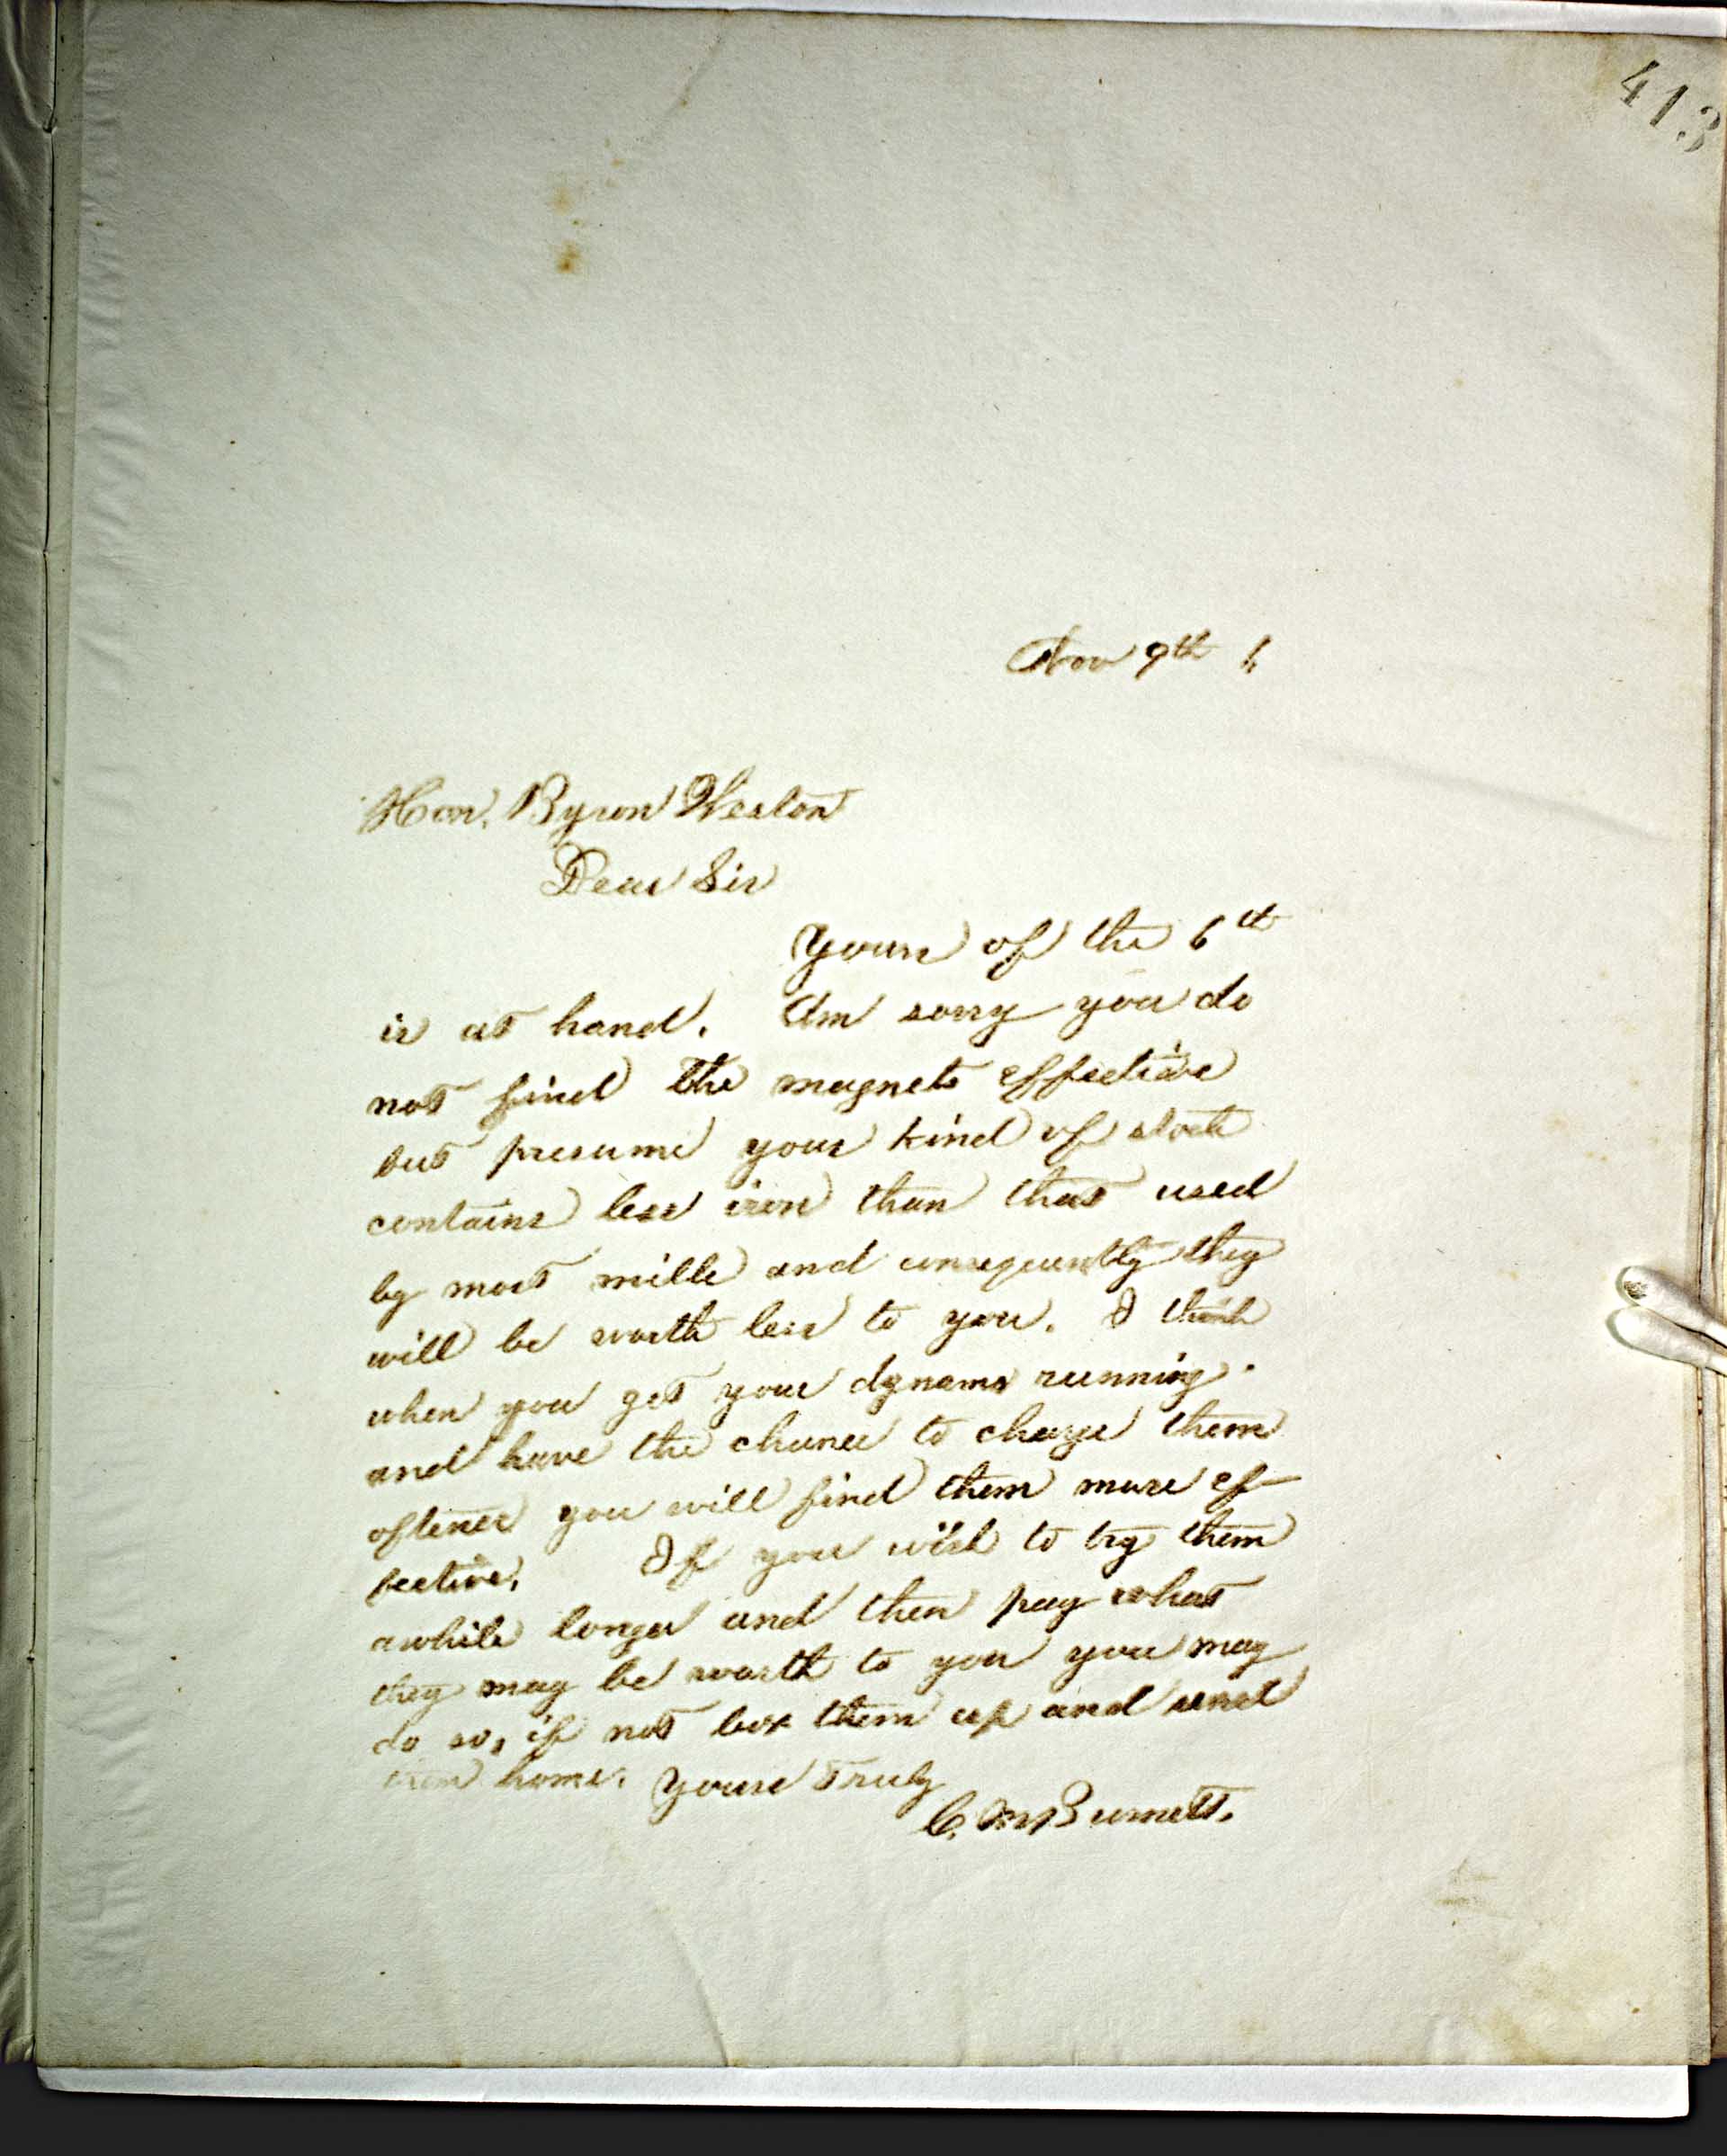 413
Nov 9th 6
Hon. Byron Weston
Dear Sir
Yours of the 6th
is at hand. Am sorry you do
not find the magnets effective
but presume your kind of stock
contains less iron than that used
by most mills and consequently they
will be worth less to you. I think
when you get your dynamo running
and have the chance to charge them
oftener you will find them more ef-
fective. If you wish to try them
awhile longer and then pay what
they may be worth to you you may
do so, if not box them up and send
them home. Yours Truly
C. M. Burnett.